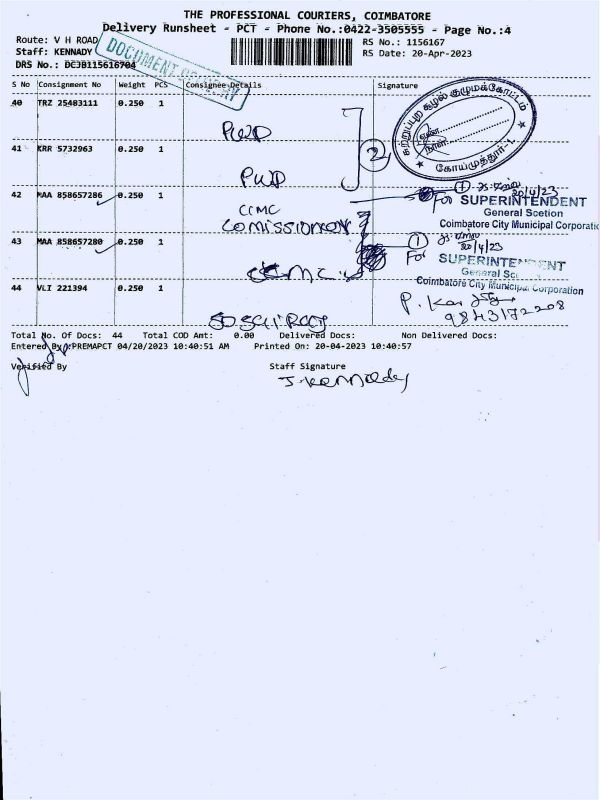 THE PROFESSIONAL COURIERS, COIMBATORE
Delivery Runsheet - PCT - Phone No.:0422-3505555 - Page No.:4
Route: V H ROAD
RS No.: 1156167
Staff: KENNADY
RS Date: 20-Apr-2023
DRS No.: DCJB115616704
DOCUMENT
S No Consignment No Weight PCS Consignee Details Signature
40 TRZ 25483111 0.250 1
PWD
சுற்றுப்புற சூழல் குழுமக்கோட்டம்
கோயமுத்தூர்-1.
41 KRR 5732963 0.250 1
2
PWD
42 MAA 858657286 0.250 1
1 20/4/23
CCMC
For SUPERINTENDENT
General Scetion
Coimbatore City Municipal Corporatic
43 MAA 858657280 0.250 1
1
20/4/23
For SUPERINTENDENT
General
Coimbatore City Municipal Corporation
44 VLI 221394 0.250 1
P.
9843172208
Total No. Of Docs: 44 Total COD Amt: 0.00 Delivered Docs: Non Delivered Docs:
Entered By :PREMAPCT 04/20/2023 10:40:51 AM Printed On: 20-04-2023 10:40:57
Verified By Staff Signature
J. Kennady